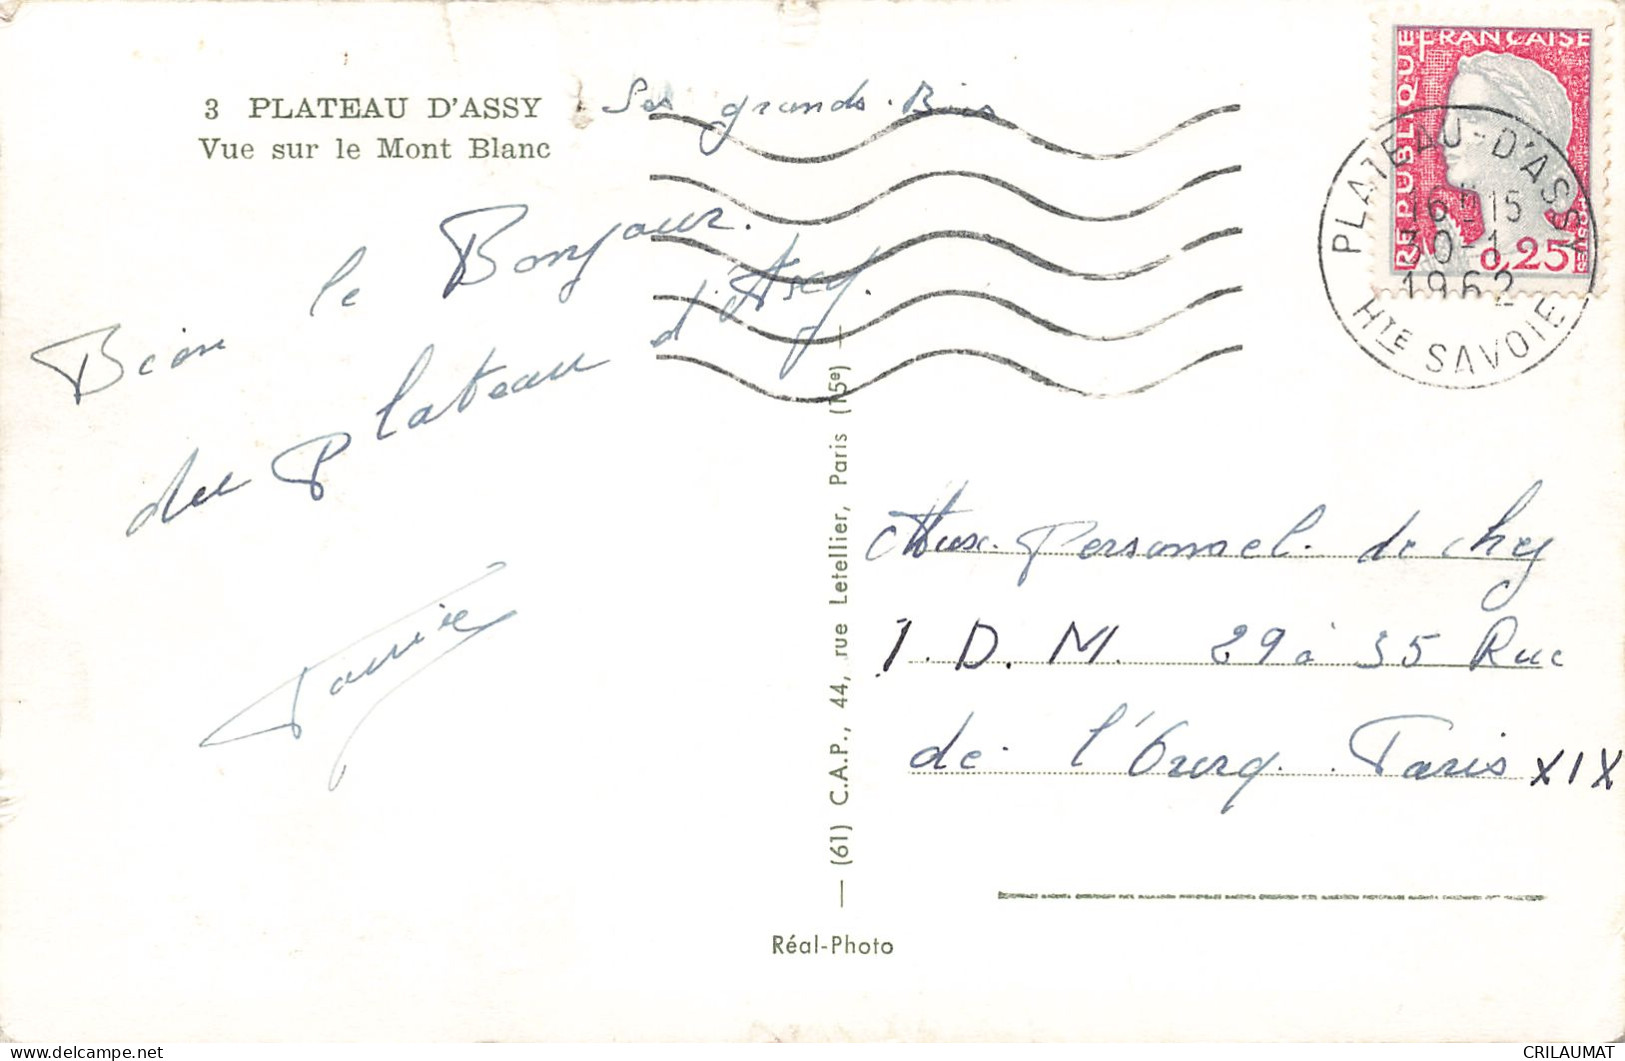 3 PLATEAU D'ASSY
Vue sur le Mont Blanc
Les grands Bois
Bien le Bonjour
du Plateau d'Assy.
REPUBLIQUE FRANÇAISE
0,25
PLATEAU-D'ASSY
16H15
30-1
1962
HTE SAVOIE
— (61) C.A.P., 44, rue Letellier, Paris (15e) —
Aux Personnel de chez
I. D. M. 29 à 35 Rue
de l'Ourcq. Paris XIX
Réal-Photo
CRILAUMAT